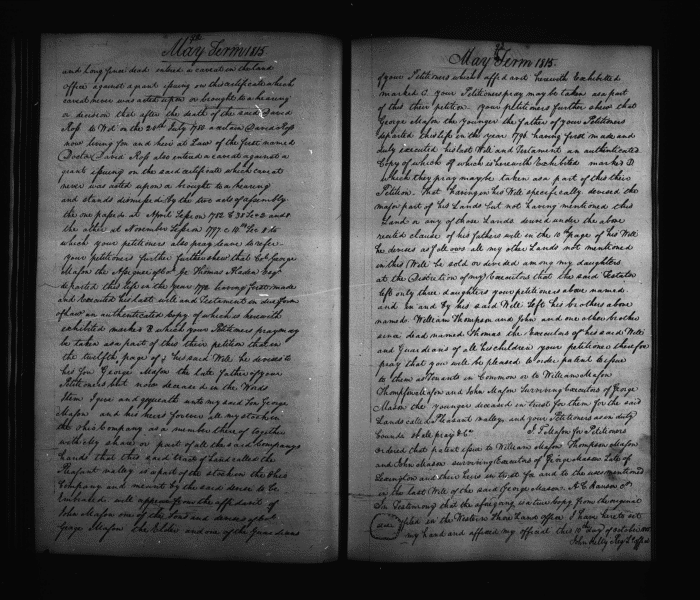 May Term 1815
and long since dead entered a caveat in the land
office against a grant issuing on this certificate which
caveat never was acted upon or brought to a hearing
or decision that after the death of the said David
Ross to Wit on the 20th July 1780 a certain David Ross
now living Son and heir at Law of the first named
Doctor David Ross also entered a caveat against a
grant issuing on the said certificate which caveat
never was acted upon or brought to a hearing
and stands dismissed by the two acts of assembly
the one passed at April Session 1782 C 38 Sec 2 and
the other at November Session 1797 c 10th Sec 8 to
which your petitioners also pray leave to refer
your petitioners further shew that Col. George
Mason the Assignee of Thomas Sladen Esqr
departed this life in the year 1792 having first made
and executed his last will and Testament in due form
of law an authenticated copy of which is herewith
exhibited marked and which your Petitioners pray may
be taken as a part of this their petition that in
the twelfth page of his said Will he devises to
his Son George Mason the late Father of your
Petitioners but now deceased in the Words
Item I give and bequeath unto my said Son George
Mason and his heirs forever all my stock in
the ohio Company as a member there of together
with my share or part of all the said Companys
lands that this said tract of land called the
Pleasant valley is a part of the stock in the Ohio
Company and meant by the said devise to be
Embraced will appear from the affidavit of
John Mason one of the Sons and devisees of
George Mason the Elder and one of the Guardians
May Term 1815.
of your Petitioners which affidavit herewith Exhibited
marked your Petitioners pray may be taken as a part
of this their petition your petitioners further shew that
George Mason the younger the father of your Petitioners
departed this life in the year 1796 having first made and
duly executed his last Will and Testament an authenticated
Copy of which is herewith Exhibited marked D
which they pray may be taken as a part of this their
Petition. That having in his Will specifically devised the
major part of his Lands but not having mentioned this
Land or any of those Lands devised under the above
recited clause of his fathers will in the 10th page of his Will
he devises as follows all my other Lands not mentioned
in this Will be sold or divided among my daughters
at the Discretion of my Executors that the said Testator
left only three daughters your petitioners above named
and in and by his said Will left his brothers above
named William Thompson and John and one other brother
since dead named Thomas the Executors of his said Will
and Guardians of all his children your petitioners therefore
pray that you will be pleased to order patent to issue
to them as Tenants in Common or to William Mason
Thompson Mason and John Mason Surviving Executors of George
Mason the younger deceased in trust for them for the said
Lands called Pleasant valley, and your Petitioners as in duty
bounds shall pray &c. J. T. Mason for Petitioners
Ordered that patent issue to William Mason Thompson Mason
and John Mason surviving Executors of George Mason Late of
Lexington and their heirs in trust for and to the uses mentioned
in the last Will of the said George Mason. A. C. Hanson Cr
In Testimony that the aforegoing is a true copy from the original
filed in the Western Shore Land office I have hereto set
my hand and affixed my official this 10th day of October
John Kelly Regr Ld Office